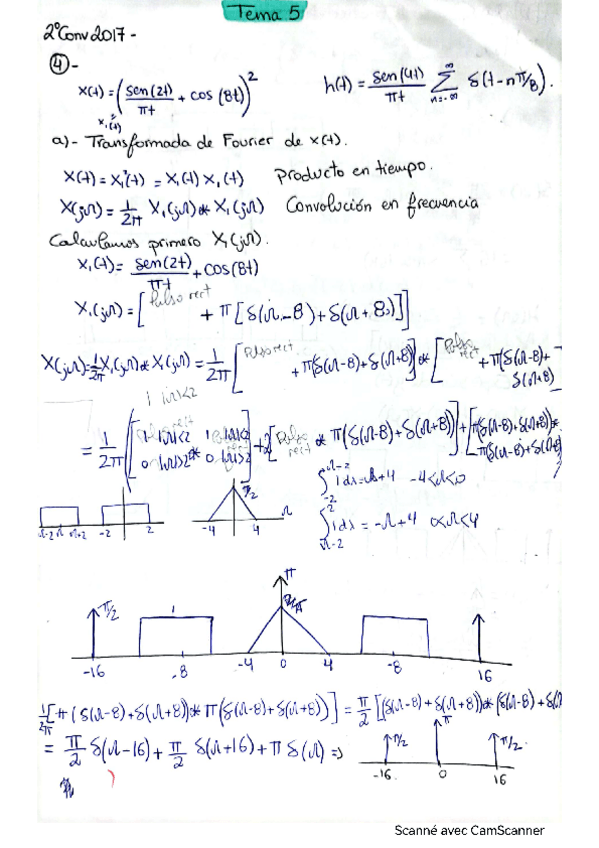 Tema 5
2ºConv 2017-
④-
x(t) = (sen(2t)/πt + cos(8t))²   h(t) = sen(4t)/πt Σ_{n=-∞}^{∞} δ(t-nπ/8).
x₁(t)
a)- Transformada de Fourier de x(t).
x(t) = x₁²(t) = x₁(t) x₁(t)   Producto en tiempo.
X(jΩ) = 1/2π X₁(jΩ) * X₁(jΩ)   Convolución en frecuencia
Calculamos primero X₁(jΩ).
x₁(t) = sen(2t)/πt + cos(8t)
X₁(jΩ) = [Pulso rect + π[δ(Ω-8) + δ(Ω+8)]]
X(jΩ) = 1/2π X₁(jΩ) * X₁(jΩ) = 1/2π [Pulso rect + π(δ(Ω-8) + δ(Ω+8))] * [Pulso rect + π(δ(Ω-8) + δ(Ω+8)
1 |Ω|<2
= 1/2π [1 |Ω|<2 0 |Ω|>2 * 1 |Ω|<2 0 |Ω|>2] + 2[Pulso rect * π(δ(Ω-8) + δ(Ω+8))] + [π(δ(Ω-8) + δ(Ω+8)) * π(δ(Ω-8) + δ(Ω+8)
∫_{-2}^{Ω+2} 1dx = Ω+4   -4<Ω<0
∫_{Ω-2}^{2} 1dx = -Ω+4   0<Ω<4
Ω-2 Ω Ω+2 -2 2
-4 4 Ω
π/2 1 π 2/π
-16 -8 -4 0 4 -8 16
1/2π π(δ(Ω-8) + δ(Ω+8)) * π(δ(Ω-8) + δ(Ω+8))] = π/2 [(δ(Ω-8) + δ(Ω+8)) * (δ(Ω-8) + δ(Ω
= π/2 δ(Ω-16) + π/2 δ(Ω+16) + π δ(Ω) ⇒
π/2 π π/2
-16 0 16
Scanné avec CamScanner